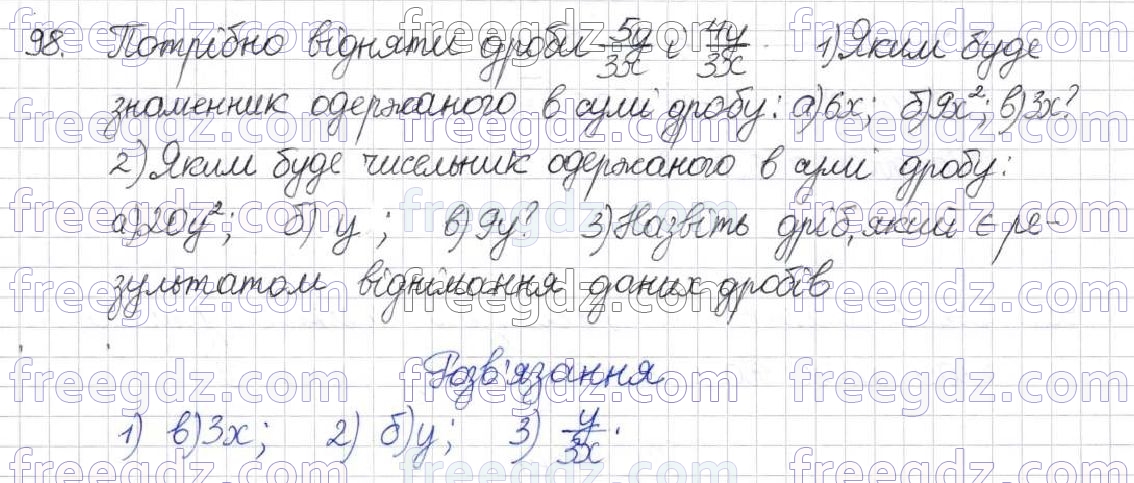 98. Потрібно відняти дроби 5y/3x і 4y/3x 1) Яким буде
знаменник одержаного в сумі дробу: а) 6x; б) 9x²; в) 3x?
2) Яким буде чисельник одержаного в сумі дробу:
а) 20y²; б) y; в) 9y? 3) Назвіть дріб, який є ре-
зультатом віднімання даних дробів
Розв'язання
1) в) 3x; 2) б) y; 3) y/3x.
freegdz.com